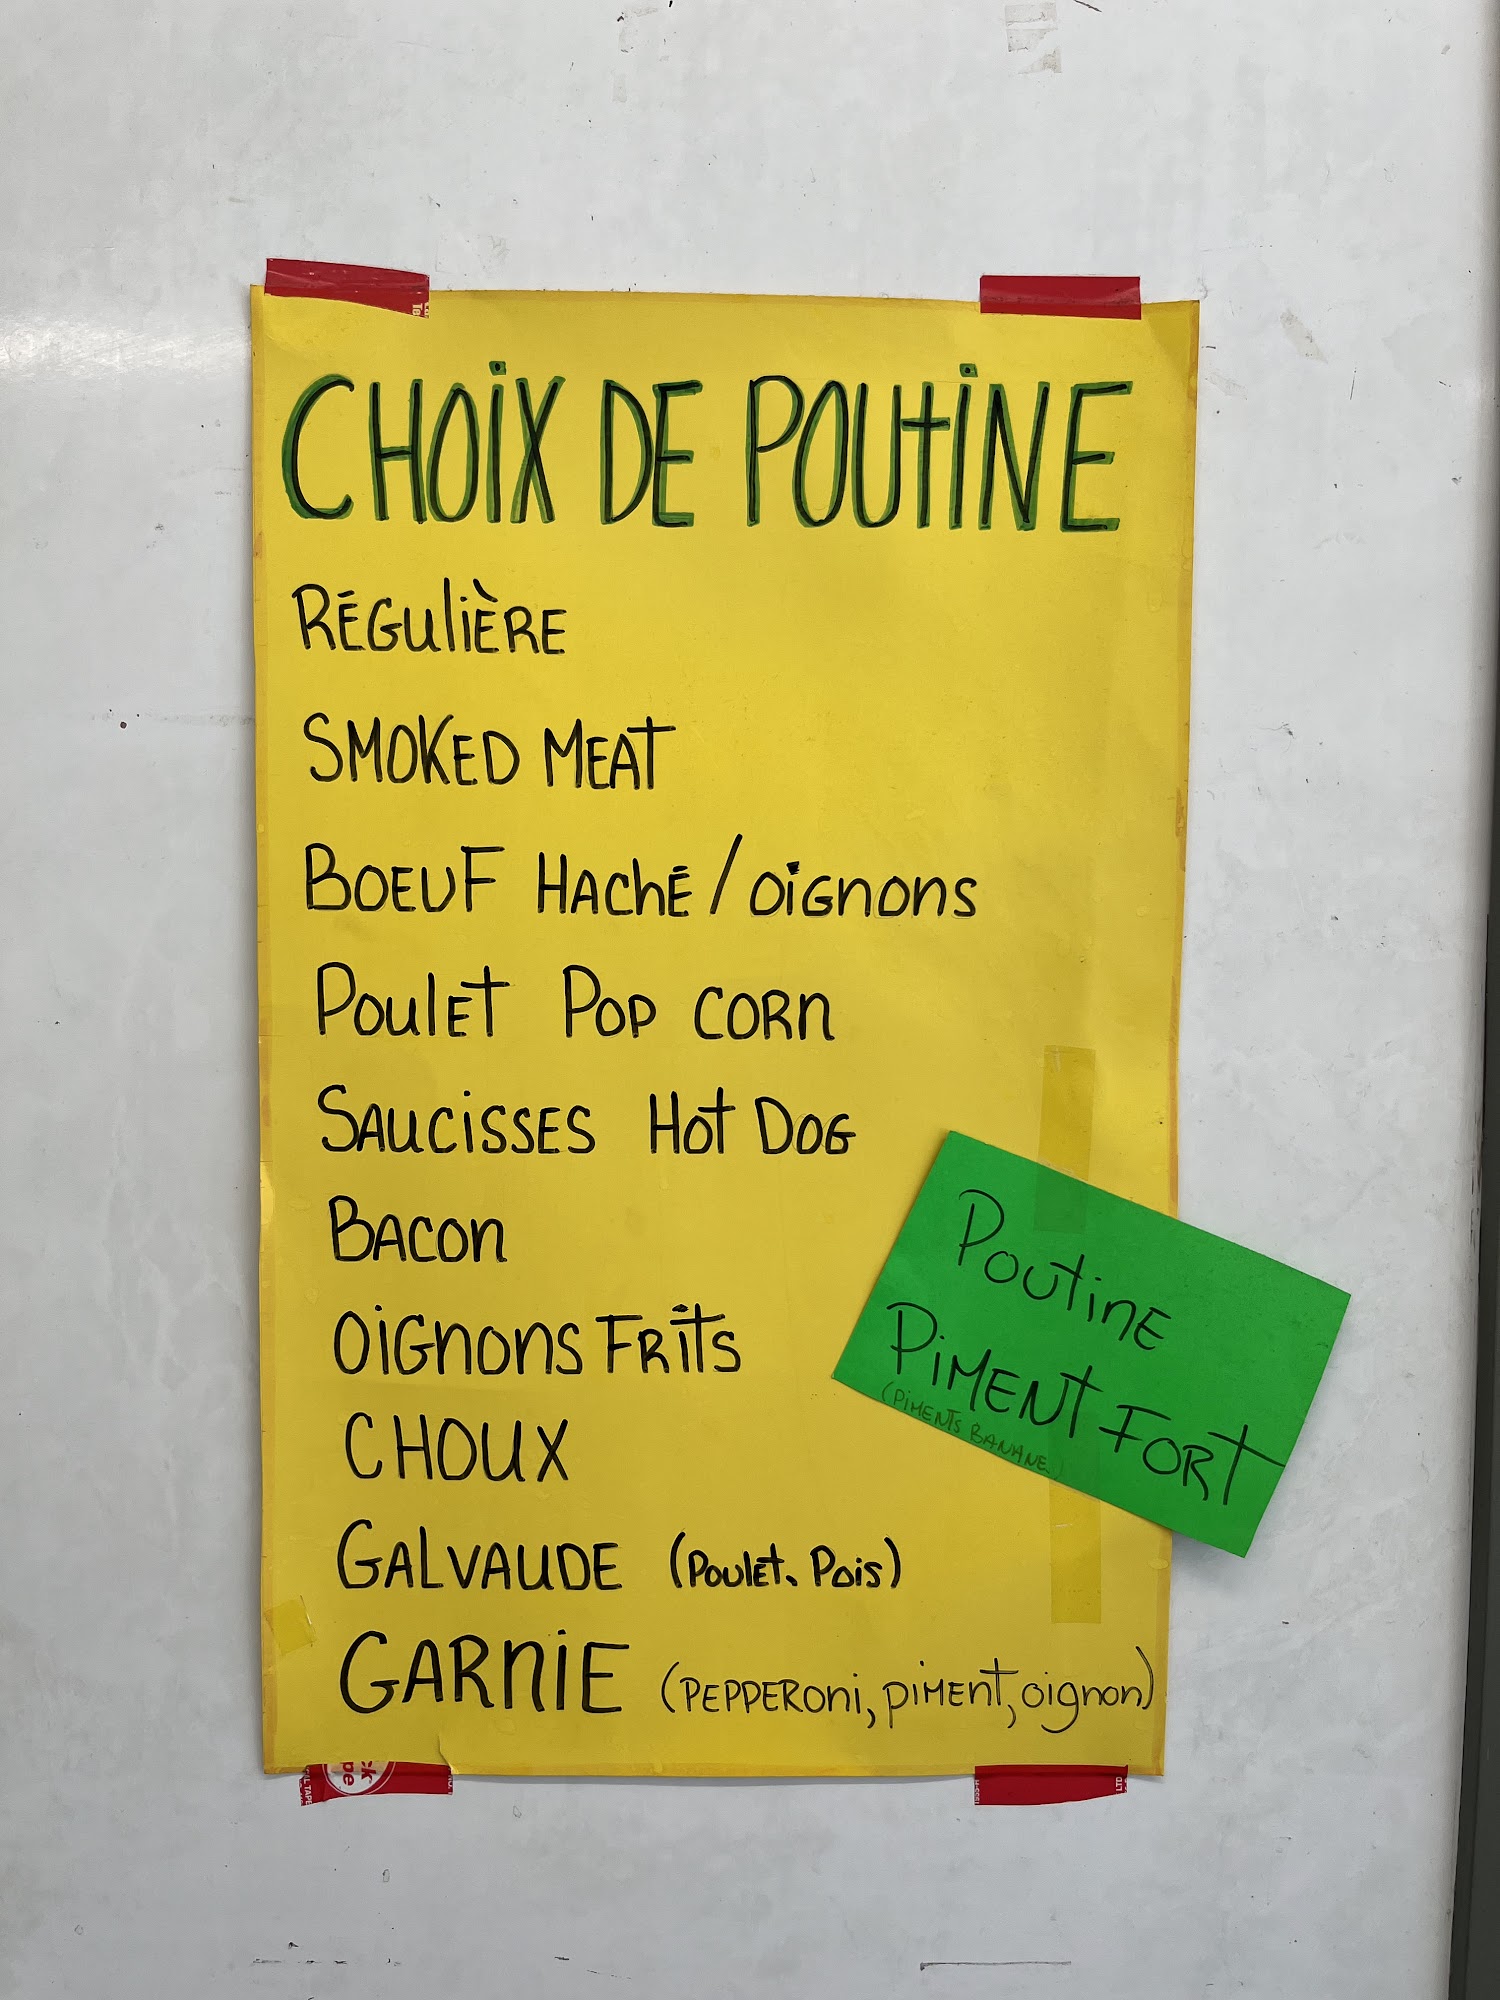 CHOIX DE POUTINE
RÉGULIÈRE
SMOKED MEAT
BOEUF HACHÉ / OIGNONS
POULET POP CORN
SAUCISSES HOT DOG
BACON
OIGNONS FRITS
CHOUX
GALVAUDE (POULET. POIS)
GARNIE (PEPPERONI, PIMENT, OIGNON)
POUTINE
PIMENT FORT
(PIMENTS BANANE)